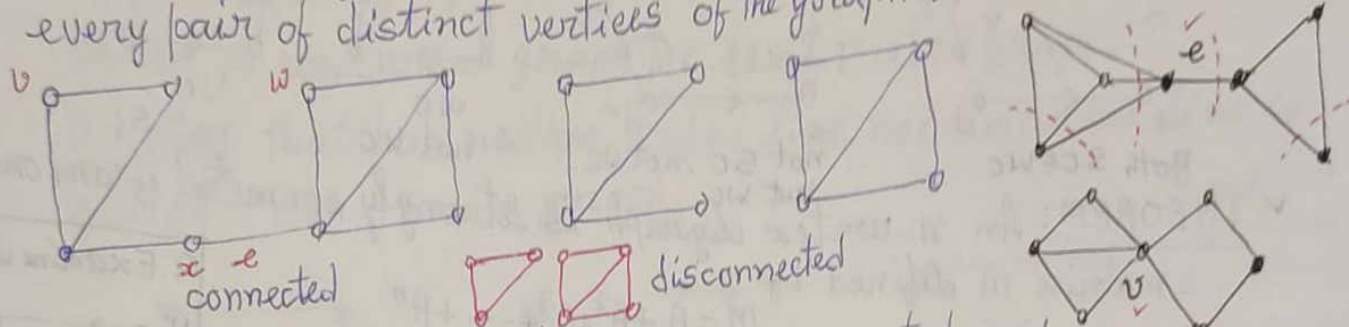 every pair of distinct vertices of the
v w e
x e
connected disconnected
v